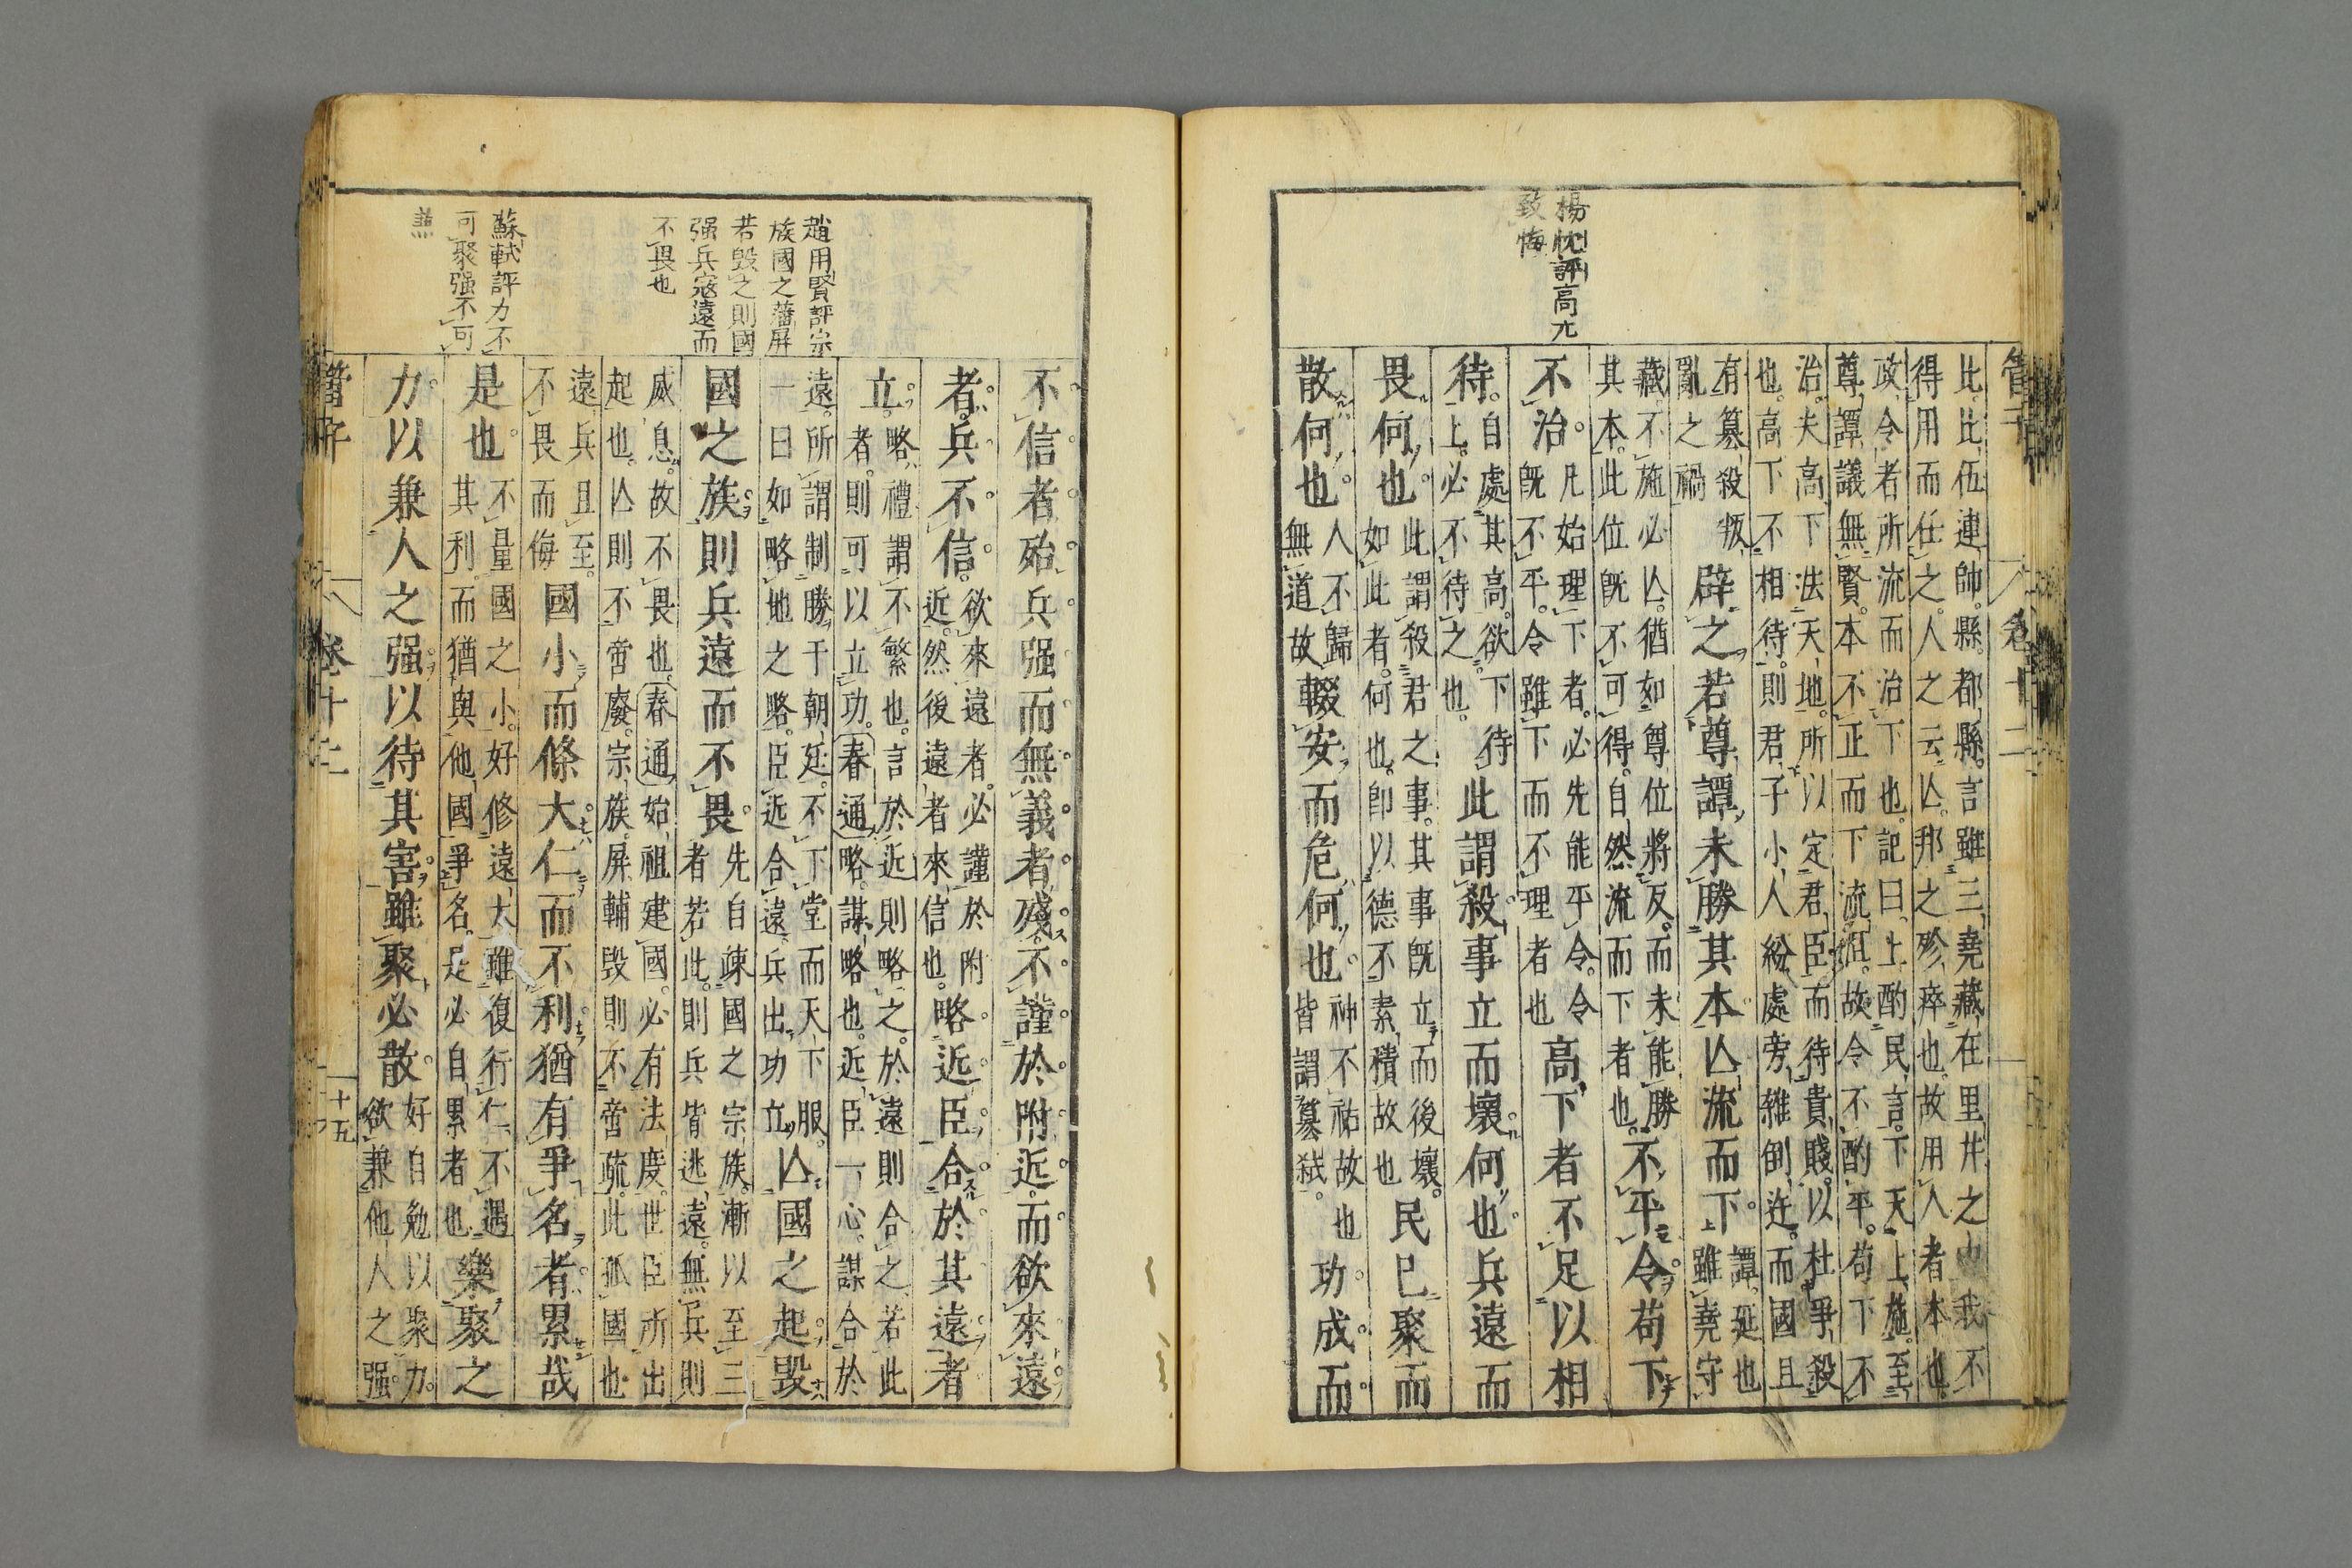 管子
卷十二
楊忱評高亢
致悔
比比伍連帥縣都縣言雖三堯藏在里井之
我不
得用而任之人之云亾邦之殄瘁也故用人者本也
政令者所流而治下也記曰上酌民言下天上施至
尊譚議無賢本不正而下流沮故令不酌平苟下不
治夫高下法天地所以定君臣而待貴賤以杜爭殺
也高下不相待則君子小人紛處旁雜倒迕而國且
有篡殺叛
亂之禍
辟之若尊譚未勝其本亾流而下
譚延也
上雖堯守
藏不施必亾猶如尊位將反而未能勝
其本此位旣不可得自然流而下者也
不平令苟下
不治
凡始理下者必先能平令令
旣不平令雖下而不理者也
高下者不足以相
待
自處其高欲下待
上必不待之也
此謂殺事立而壞何也兵遠而
畏何也
此謂殺君之事其事旣立而後壞
如此者何也卽以德不素積故也
民已聚而
散何也
人不歸
無道故
輟安而危何也
神不祐故也
皆謂篡弑
功成而
不信者殆兵强而無義者殘不謹於附近而欲來遠
者兵不信
欲來遠者必謹於附
近然後遠者來信也
略近臣合於其遠者
立
略禮謂不繁也言於近則略之於遠則合之若此
者則可以立功春通略謀略也近臣一心謀合於
遠所謂制勝于朝廷不下堂而天下服
一曰如略地之略臣近合遠兵出功立
亾國之起毁
國之族則兵遠而不畏
先自疎國之宗族漸以至三
者若此則兵皆逃遠無兵則
威息故不畏也春通始祖建國必有法度世臣所出
起也亾則不啻廢宗族屏輔毁則不啻疏此孤國也
遠兵且至
不畏而侮
國小而條大仁而不利猶有爭名者累哉
是也
不量國之小好修遠大雖復行仁不遇
其利而猶與他國爭名是必自累者也
樂聚之
力以兼人之强以待其害雖聚必散
好自勉以聚力
欲兼他人之强
趙用賢評宗
族國之藩屏
若毁之則國
强兵寇遠而
不畏也
蘇軾評力不
可聚强不可
兼
管子
卷十二
十五